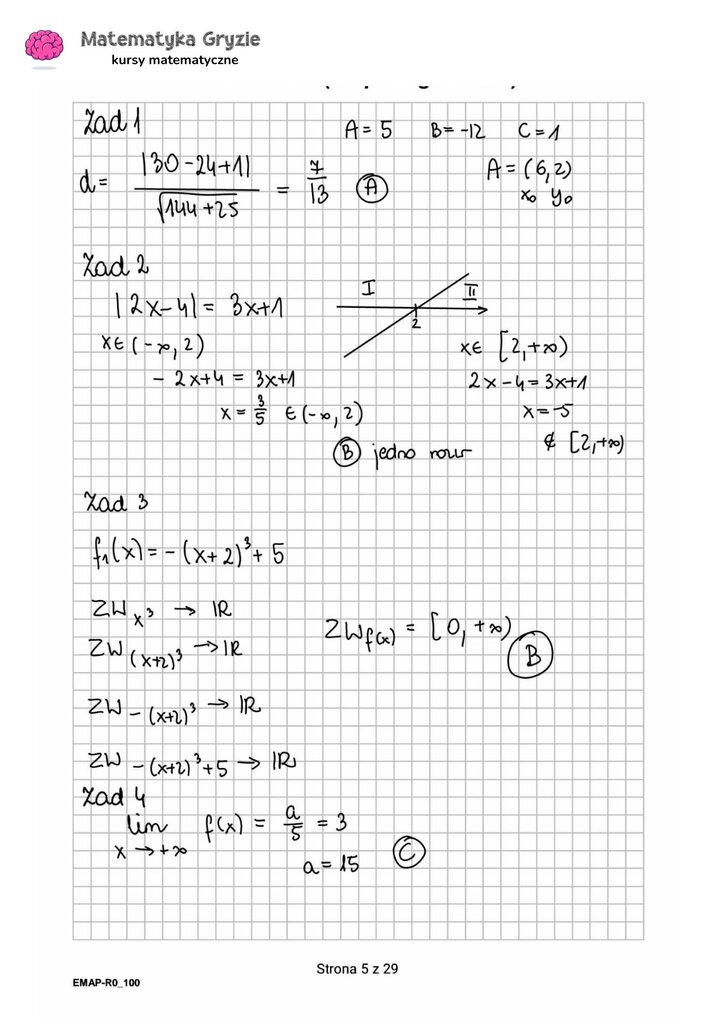 Matematyka Gryzie
kursy matematyczne
Zad 1
A = 5 B = -12 C = 1
d = |30 - 24 + 1| / √144 + 25 = 7/13 (A)
A = (6, 2)
x₀ y₀
Zad 2
|2x - 4| = 3x + 1
I II
2
x ∈ (-∞, 2)
x ∈ [2, +∞)
- 2x + 4 = 3x + 1
2x - 4 = 3x + 1
x = 3/5 ∈ (-∞, 2)
x = -5
∉ [2, +∞)
(B) jedno rozw
Zad 3
f₁(x) = - (x + 2)³ + 5
ZW x³ → ℝ
ZW f(x) = [0, +∞)
(B)
ZW (x+2)³ → ℝ
ZW -(x+2)³ → ℝ
ZW -(x+2)³+5 → ℝ
Zad 4
lim f(x) = a/5 = 3
x → +∞
a = 15 (C)
Strona 5 z 29
EMAP-R0_100